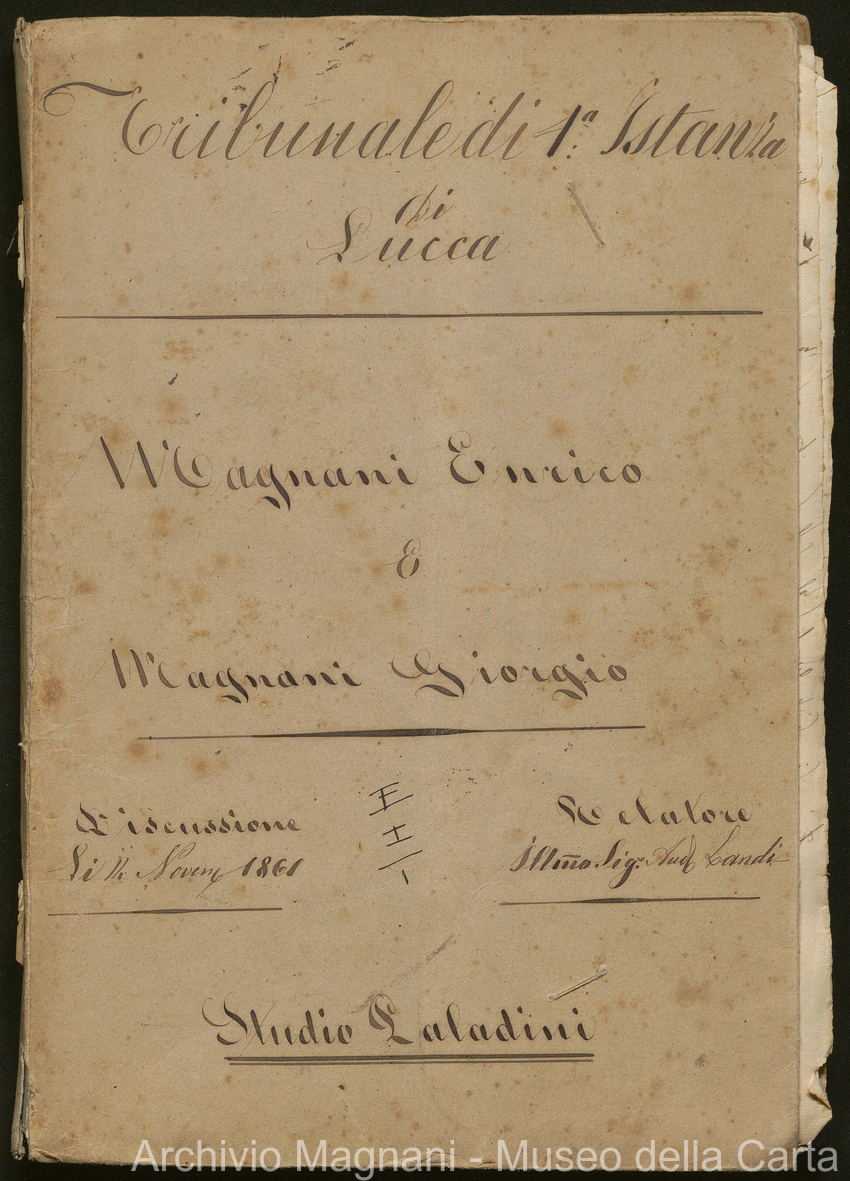 Tribunale di 1.ª Istanza
di
Lucca
Magnani Enrico
E
Magnani Giorgio
Discussione
Li Novem 1861
Relatore
Illmo Sigr Aud Landi
Studio Paladini
Archivio Magnani - Museo della Carta